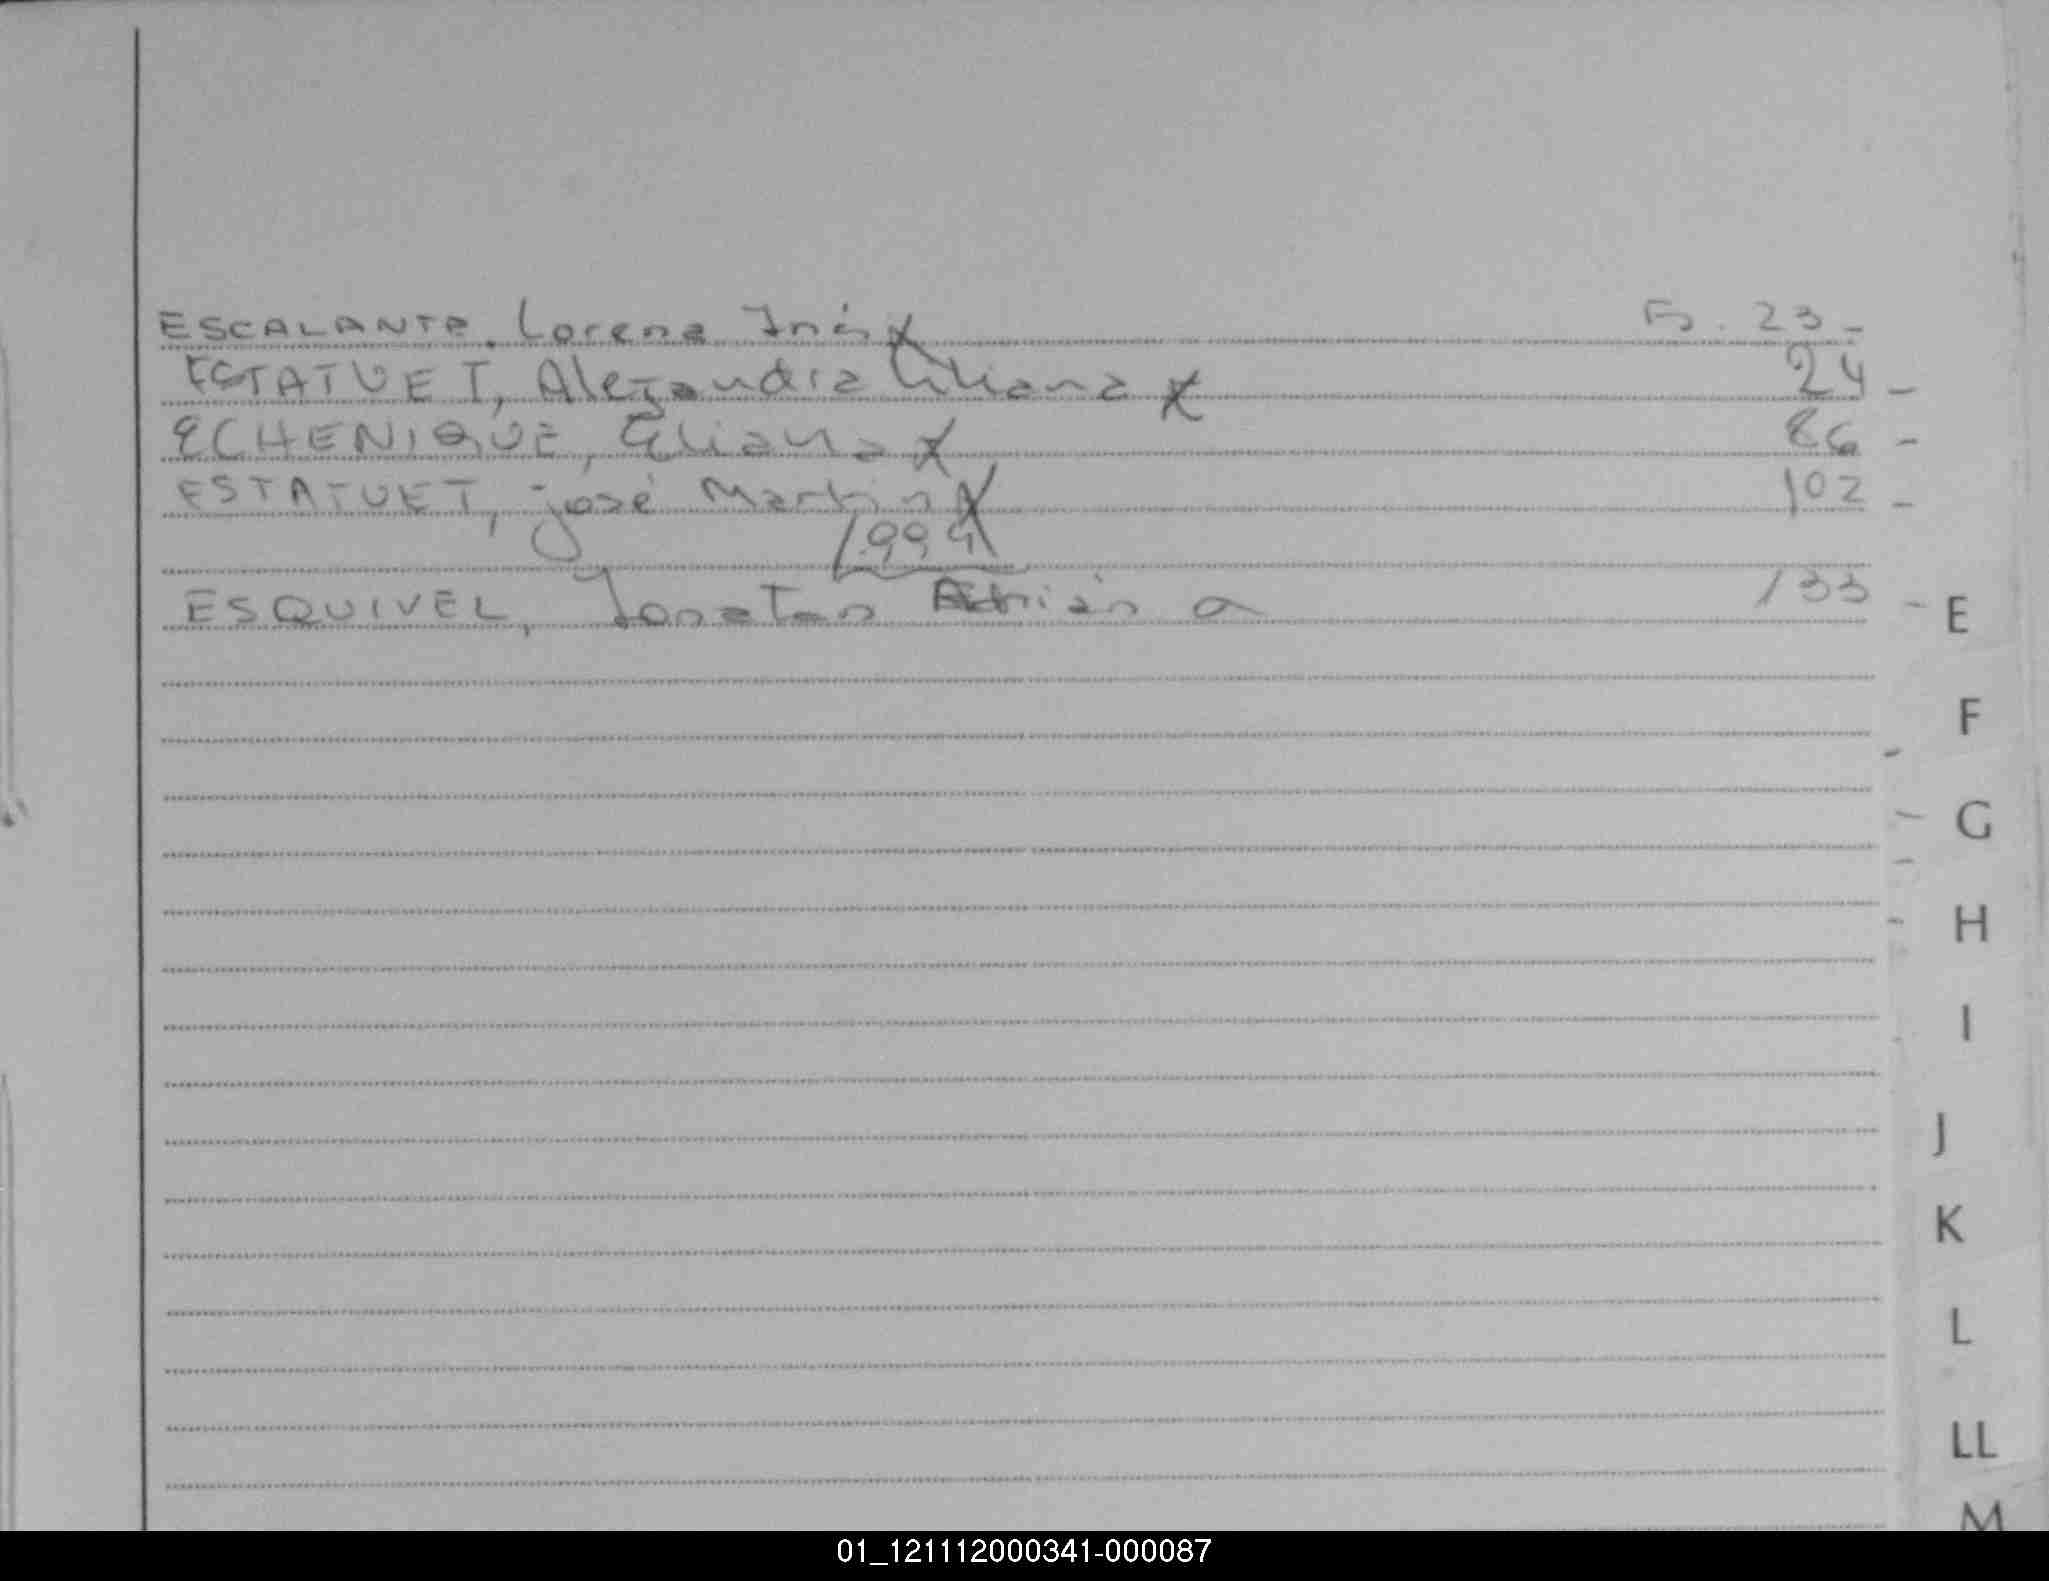 ESCALANTE, Lorena Inés X Fs. 23 -
ESTATUET, Alejandra Liliana X 24 -
ECHENIQUE, Eliana X 86 -
ESTATUET, José Martin X 102 -
1994
ESQUIVEL, Jonatan Adrián 133 -
E
F
G
H
I
J
K
L
LL
M
01_121112000341-000087